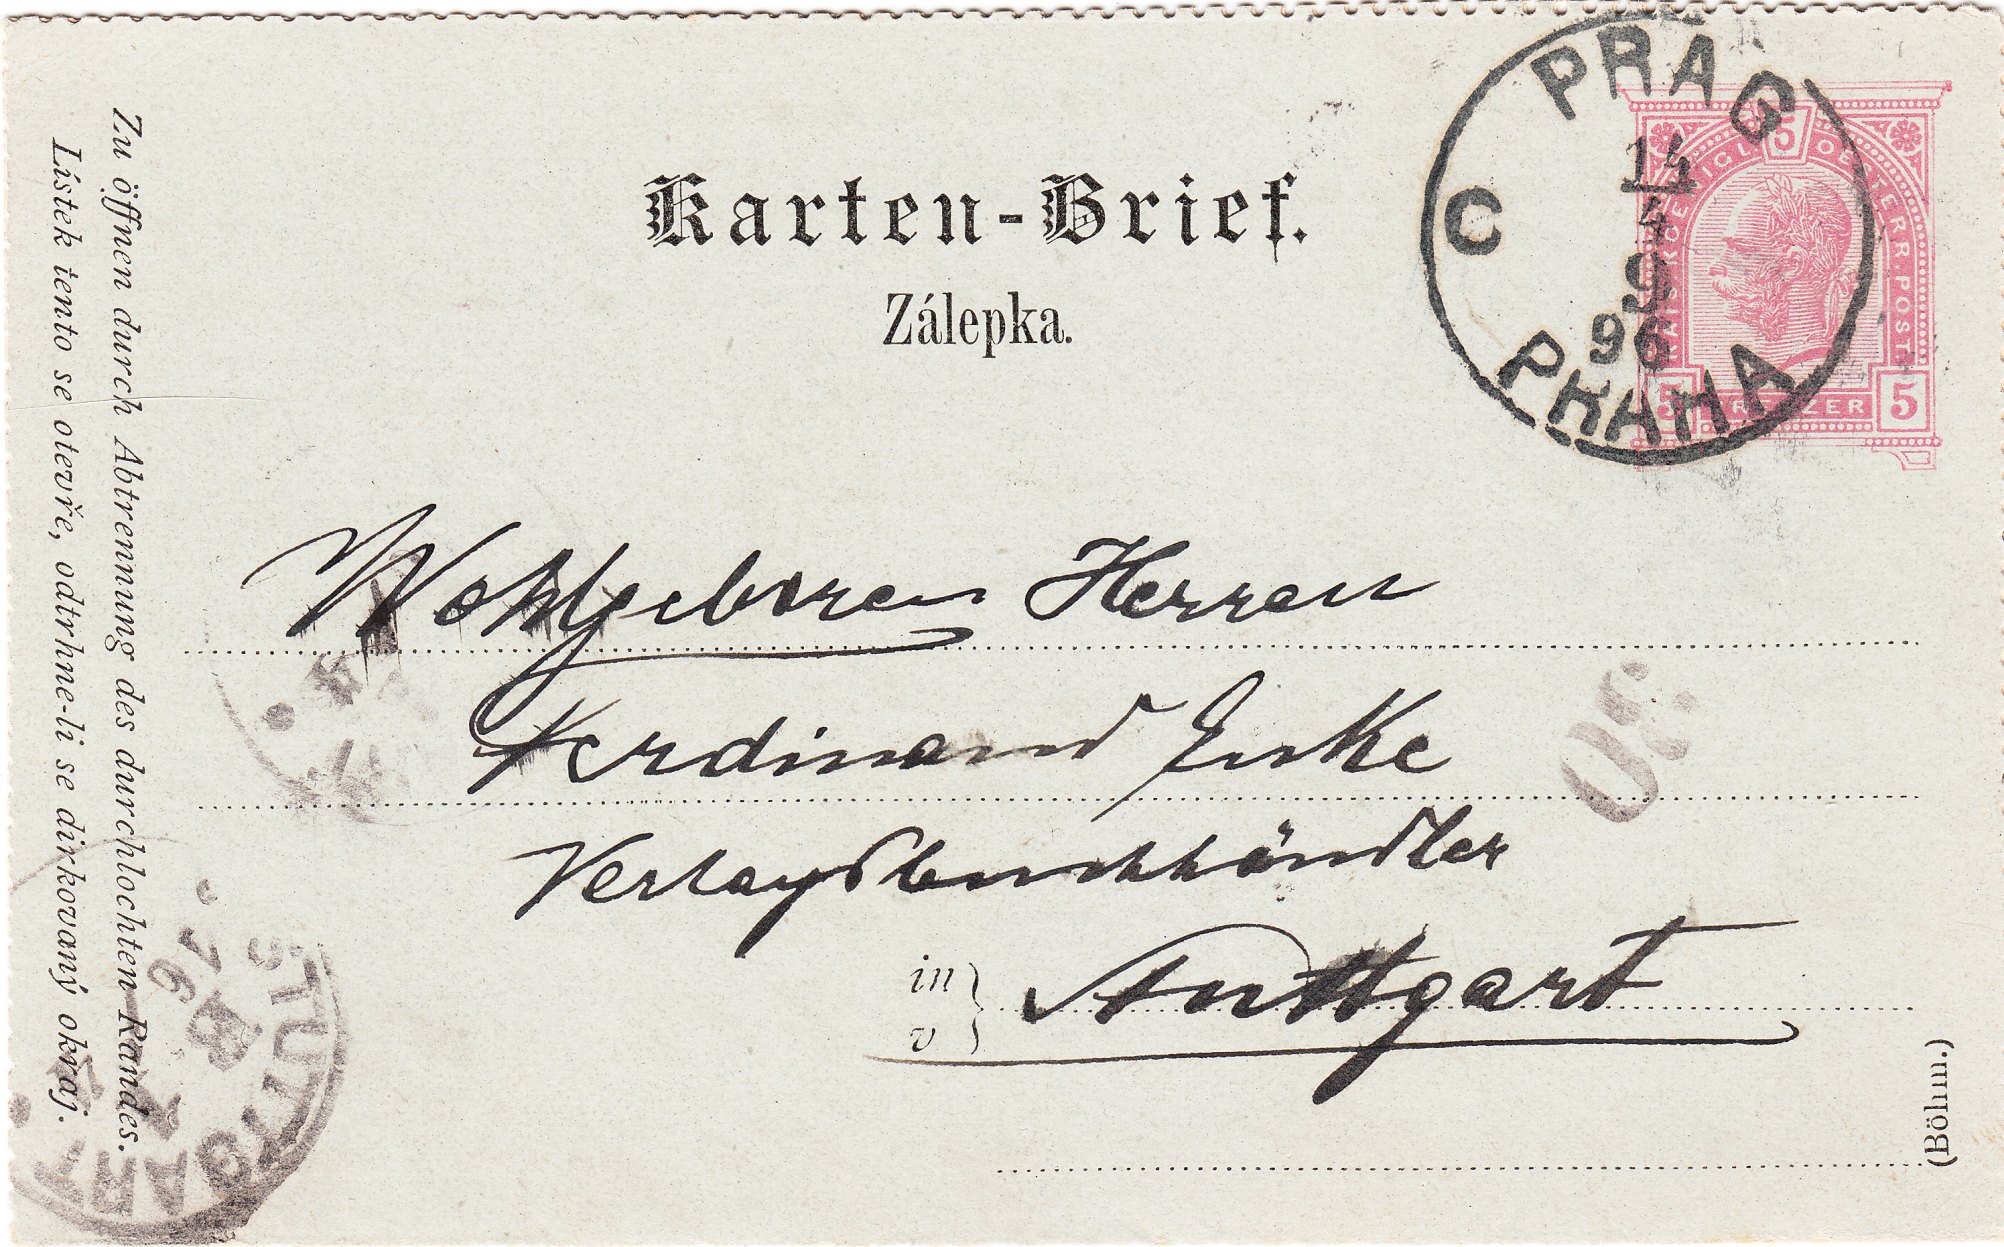 Karten-Brief.
Zálepka.
PRAG
14
4
9
96
C
PRAHA
KAIS. KOENIGL. OESTERR. POST
5
5 KREUZER 5
Wohlgeboren Herren
Ferdinand Enke
Verlagsbuchhändler
in
v
Stuttgart
Zu öffnen durch Abtrennung des durchlochten Randes.
Lístek tento se otevře, odtrhne-li se dirkovaný okraj.
(Böhm.)
STUTTGART